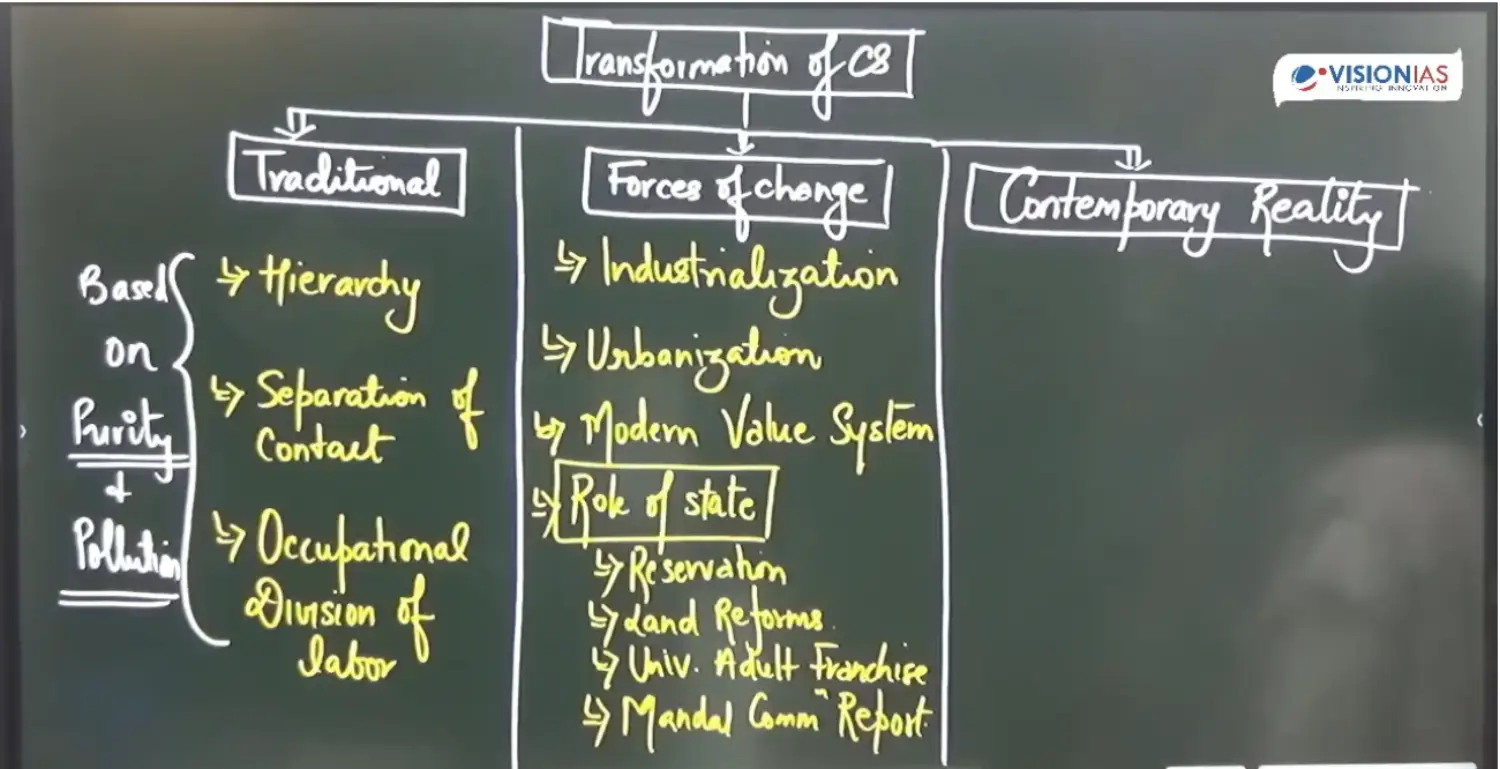 Transformation of CS
VISIONIAS
INSPIRING INNOVATION
Traditional
Forces of change
Contemporary Reality
Based
on
Purity
+
Pollution
↳ Hierarchy
↳ Separation of
Contact
↳ Occupational
Division of
labor
↳ Industrialization
↳ Urbanization
↳ Modern Value System
↳ Role of state
↳ Reservation
↳ Land Reforms.
↳ Univ. Adult Franchise
↳ Mandal Commⁿ Report.